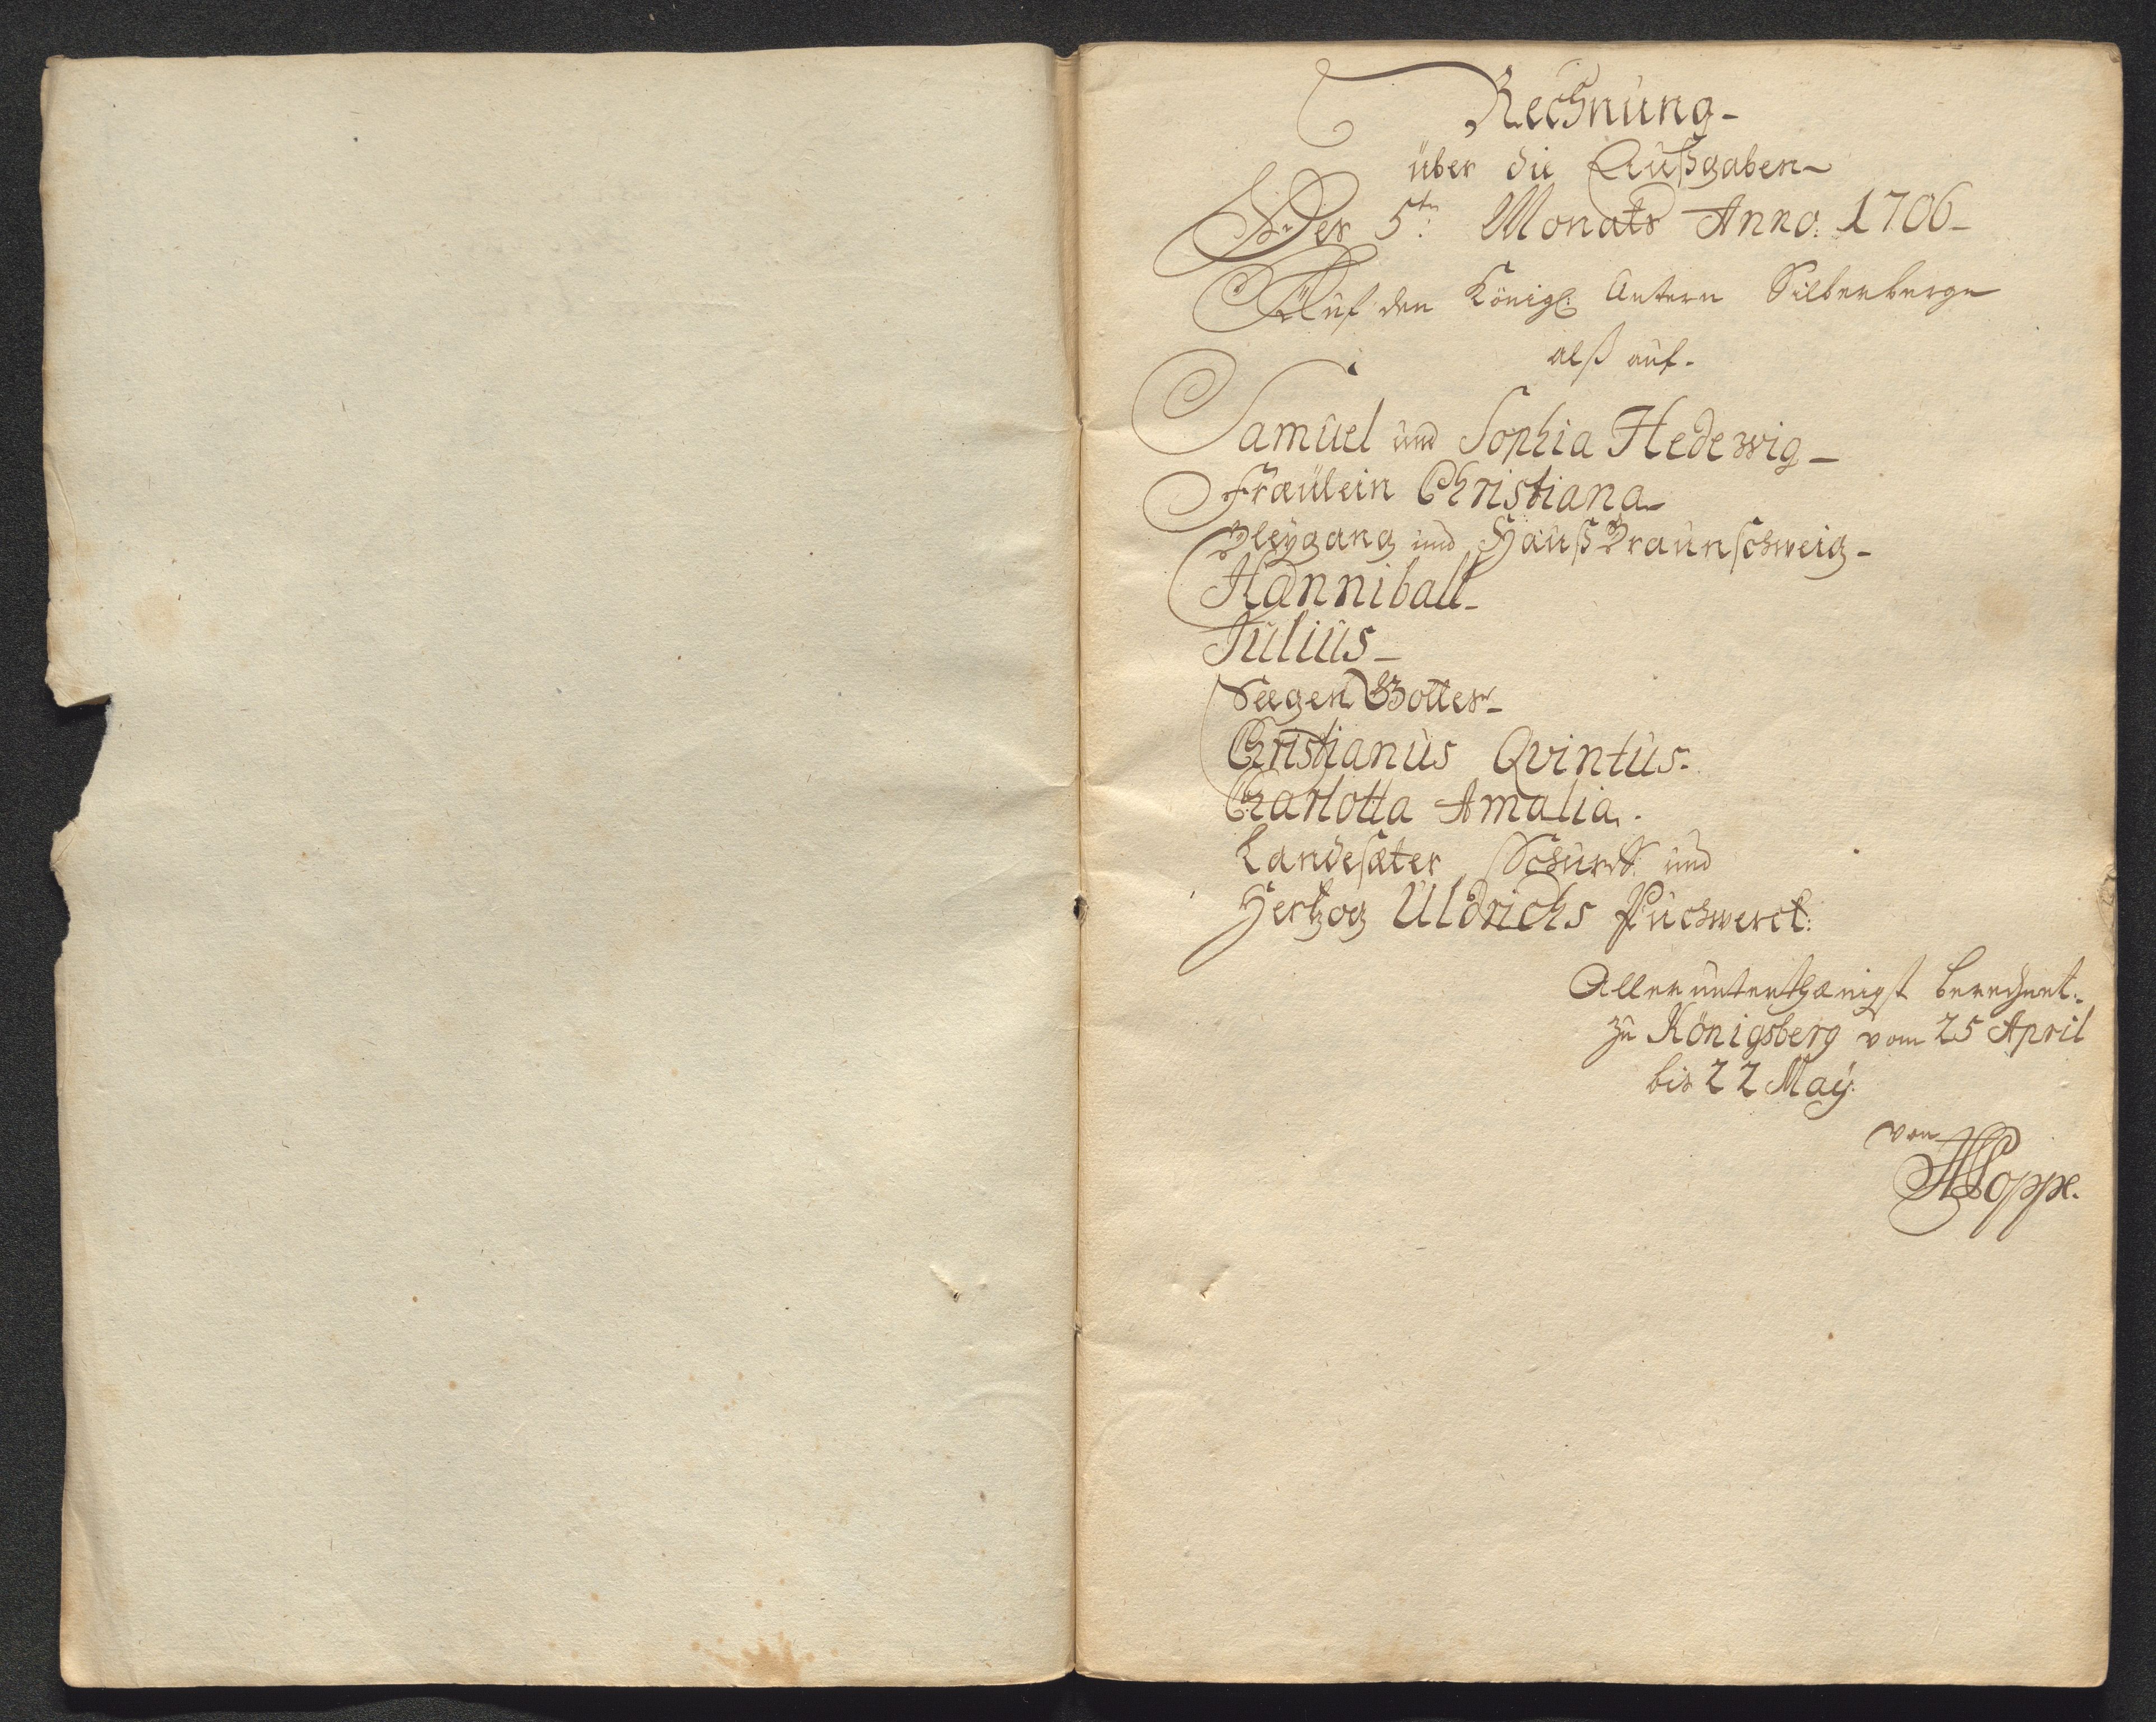 Rechnung
über die Außgaben
Des 5ten Monats Anno: 1706
Auf den Königl: Untern Silberberge
alß auf
Samuel und Sophia Hedewig
Fræülein Christiana
Bleÿgang und Hauß Braunschweig
Hanniball
Julius
Seegen Gottes
Christianus Qvintus
Charlotta Amalia
Landesæter Schurff und
Hertzog Uldrichs Puchwerck:
Allerunterthænigst berechnet
zu Königsberg vom 25 April
bis 22 Maÿ:
von
HPoppe.